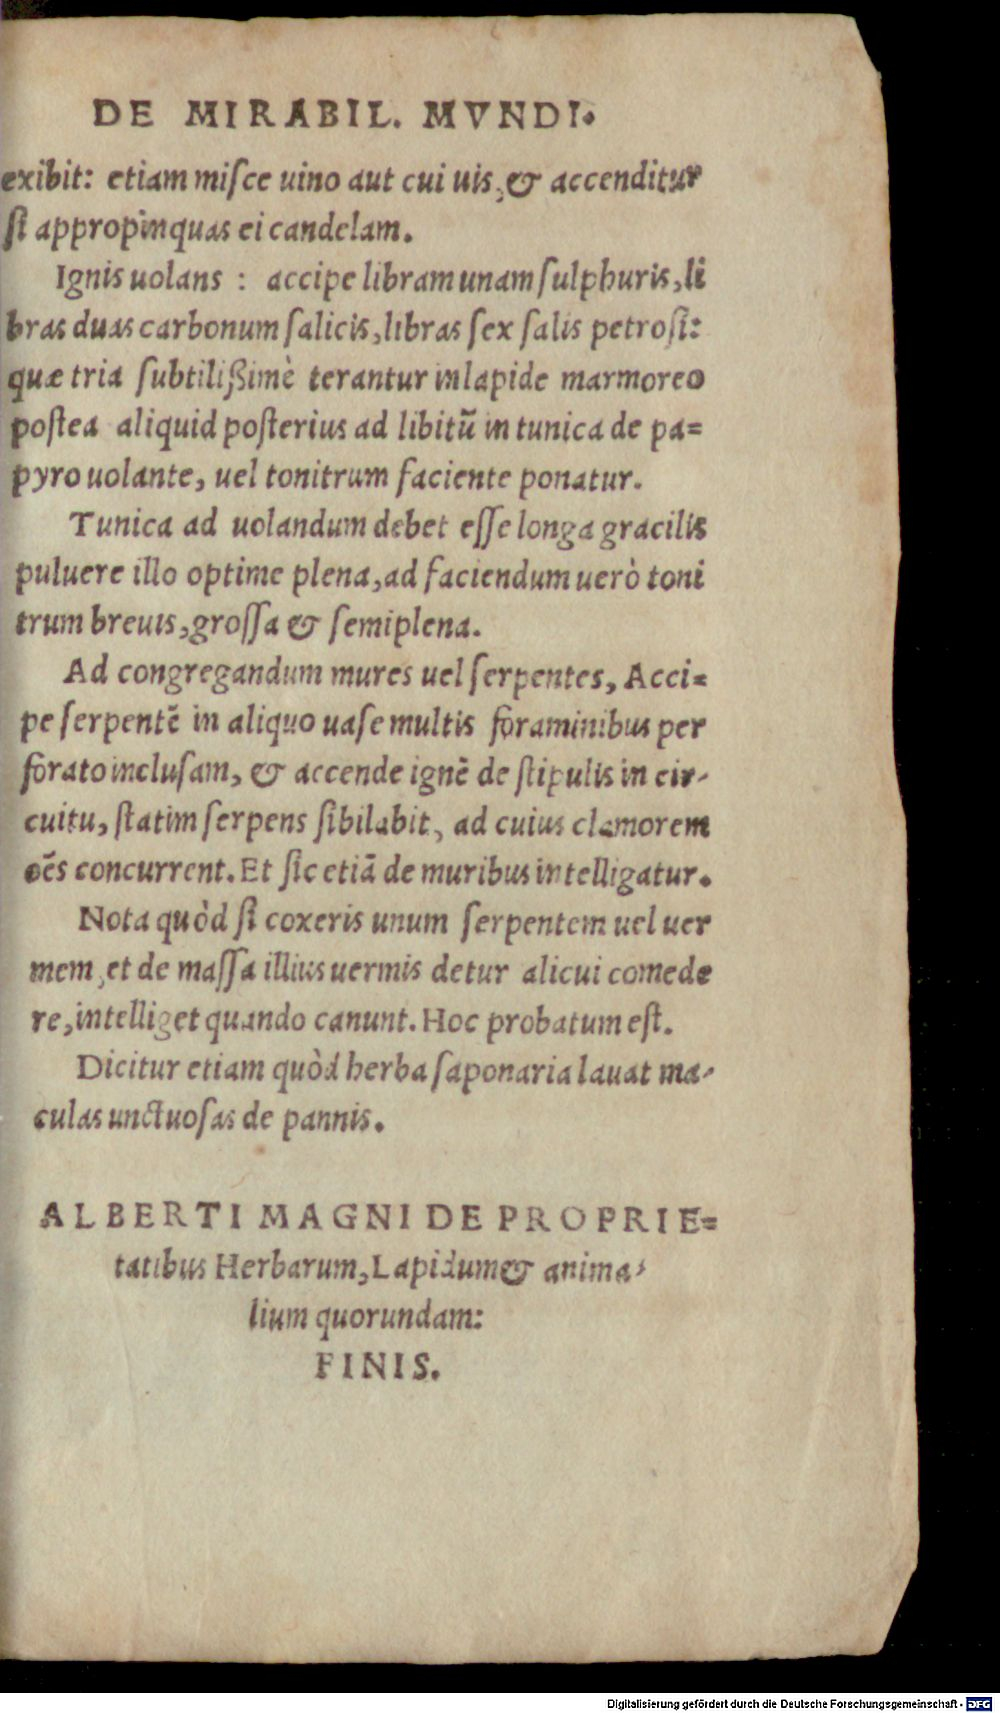 DE MIRABIL. MVNDI.
exibit: etiam miſce uino aut cui uis, & accenditur
ſi appropinquas ei candelam.
Ignis uolans : accipe libram unam ſulphuris, li
bras duas carbonum ſalicis, libras ſex ſalis petroſi:
quæ tria ſubtilißimè terantur in lapide marmoreo
poſtea aliquid poſterius ad libitū in tunica de pa=
pyro uolante, uel tonitrum faciente ponatur.
Tunica ad uolandum debet eſſe longa gracilis
puluere illo optime plena, ad faciendum uerò toni
trum breuis, groſſa & ſemiplena.
Ad congregandum mures uel ſerpentes, Acci=
pe ſerpentē in aliquo uaſe multis foraminibus per
forato incluſam, & accende ignē de ſtipulis in cir-
cuitu, ſtatim ſerpens ſibilabit, ad cuius clamorem
oēs concurrent. Et ſic etiā de muribus intelligatur.
Nota quòd ſi coxeris unum ſerpentem uel uer
mem, et de maſſa illius uermis detur alicui comede
re, intelliget quando canunt. Hoc probatum eſt.
Dicitur etiam quòd herba ſaponaria lauat ma-
culas unctuoſas de pannis.
ALBERTI MAGNI DE PROPRIE=
tatibus Herbarum, Lapidum & anima-
lium quorundam:
FINIS.
Digitalisierung gefördert durch die Deutsche Forschungsgemeinschaft - DFG